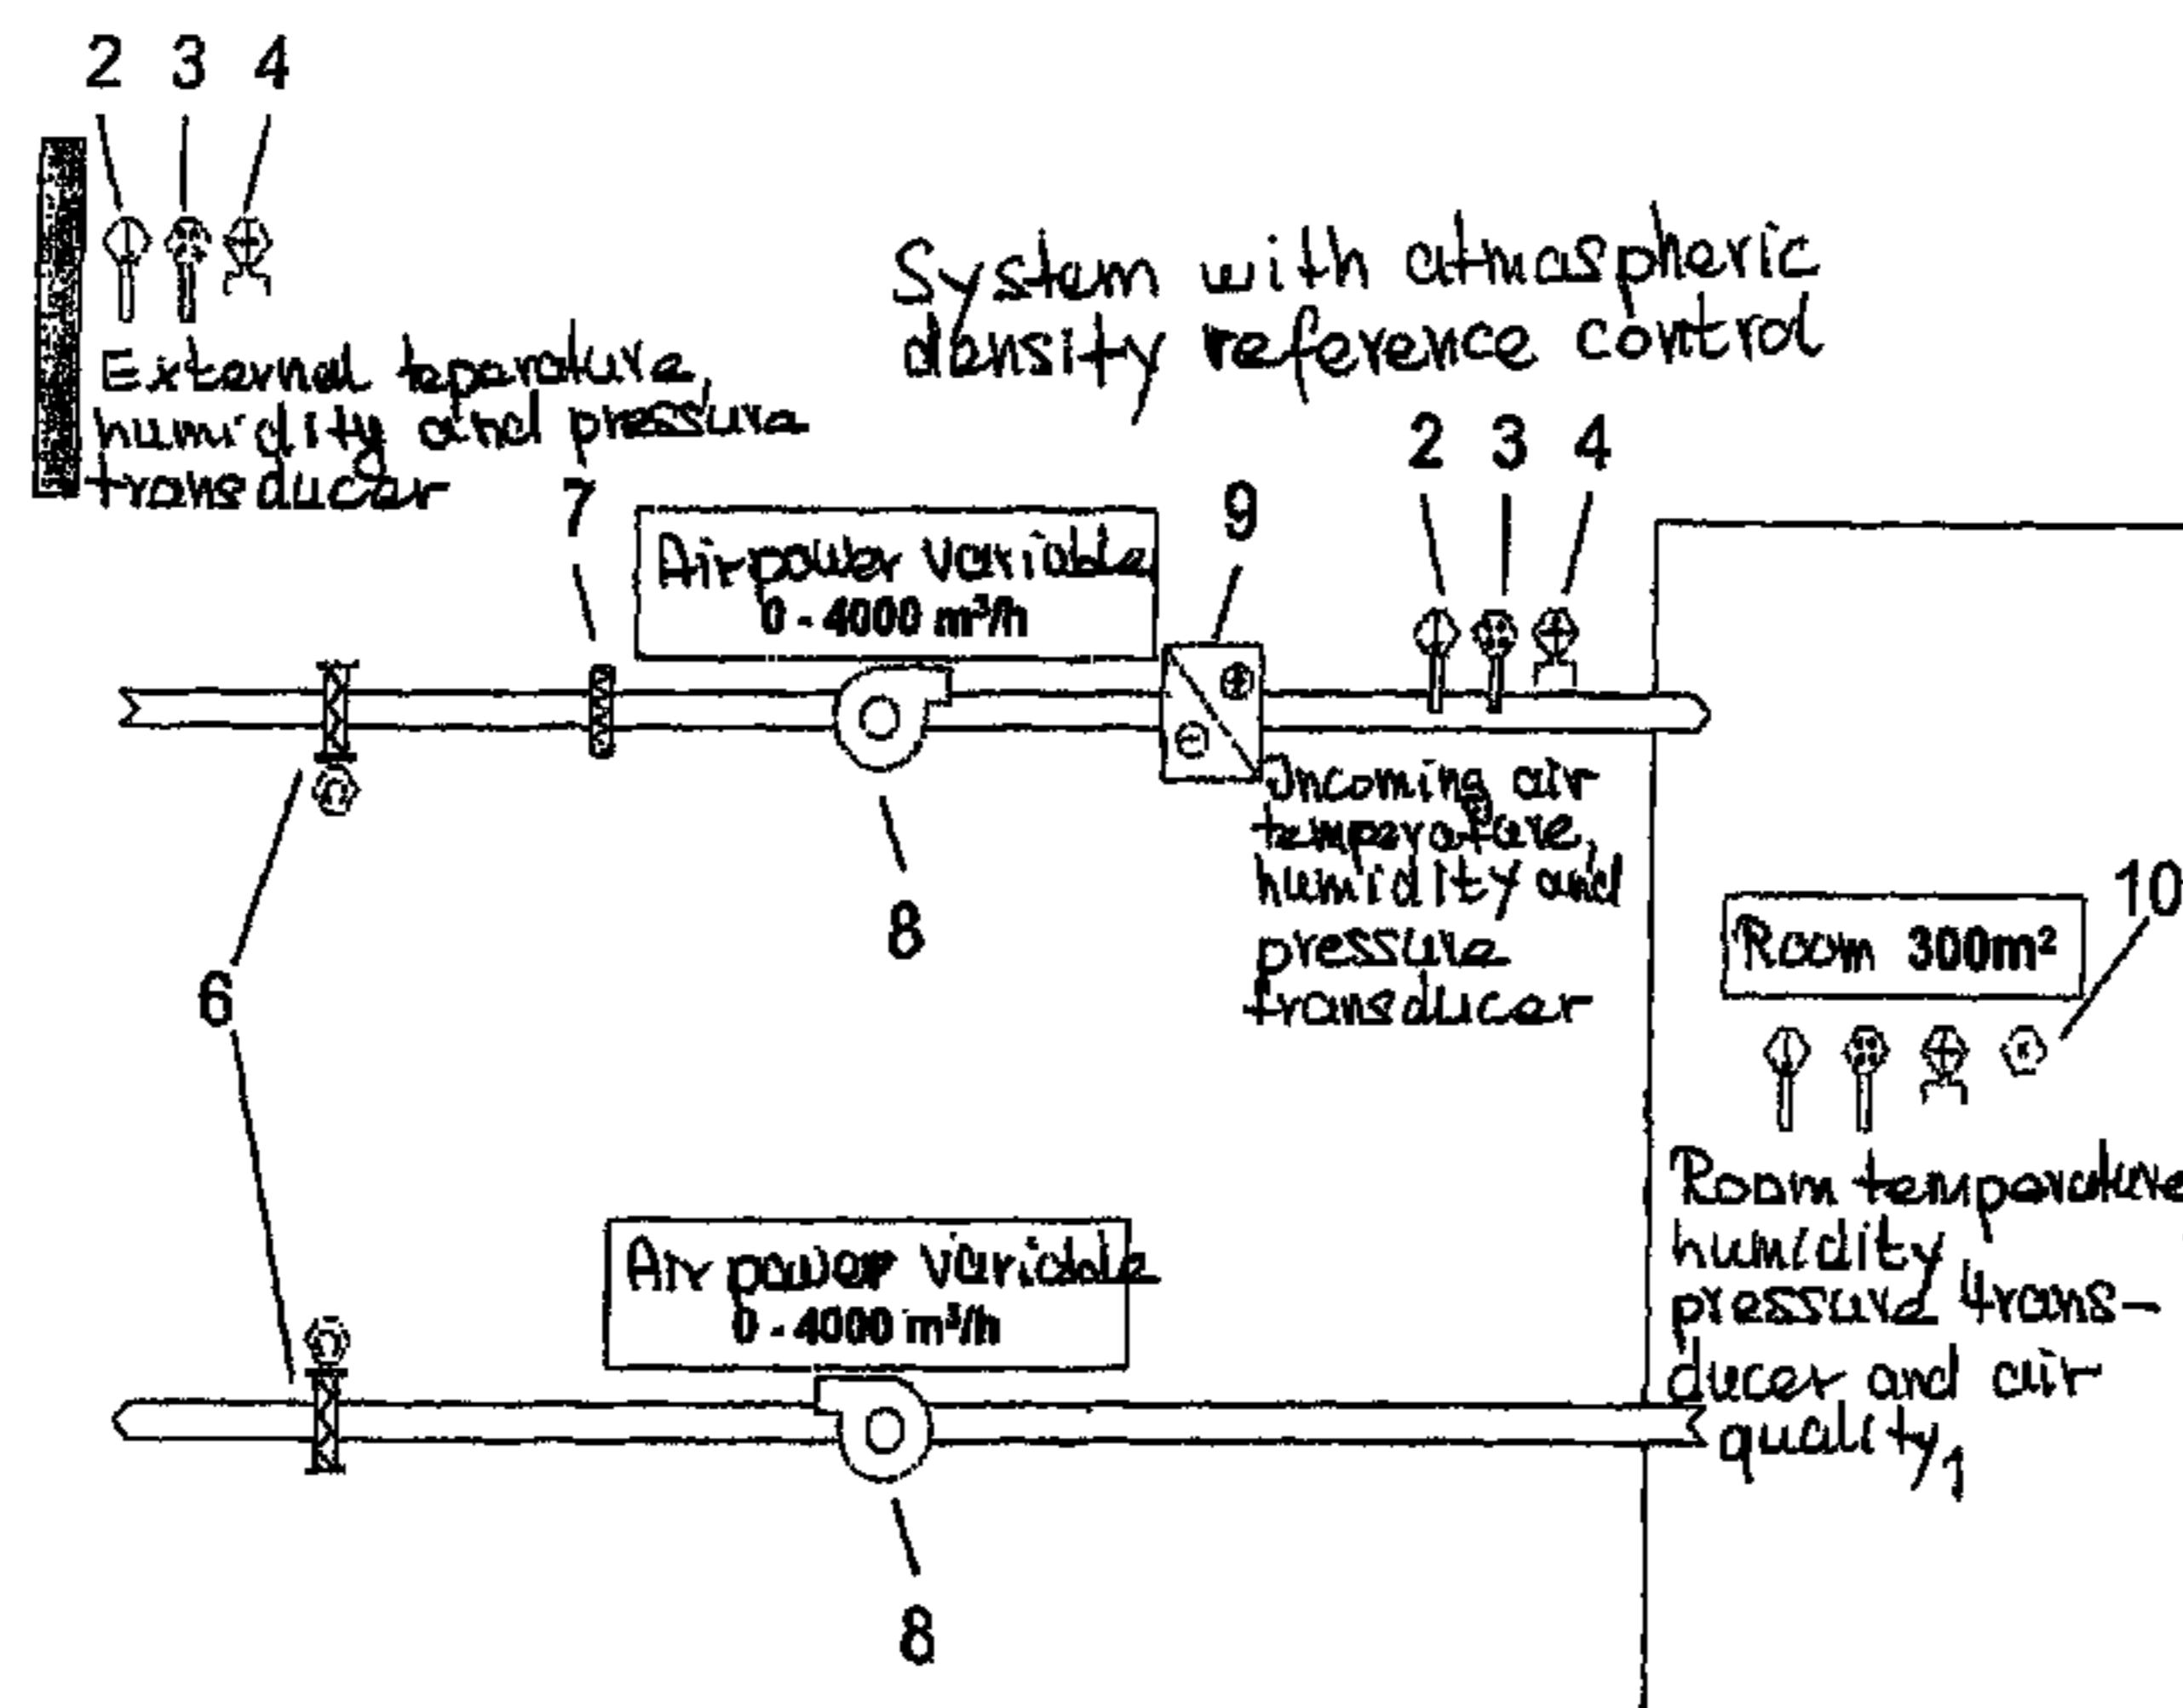 2 3 4
System with atmospheric
density reference control
External teparature,
humidity and pressure
transducer
2 3 4
7
9
Air power variable
0 - 4000 m³/h
Incoming air
temperature,
humidity and
pressure
transducer
8
6
10
Room 300m²
Room temperature
humidity
pressure trans-
ducer and air
quality
1
Air power variable
0 - 4000 m³/h
8